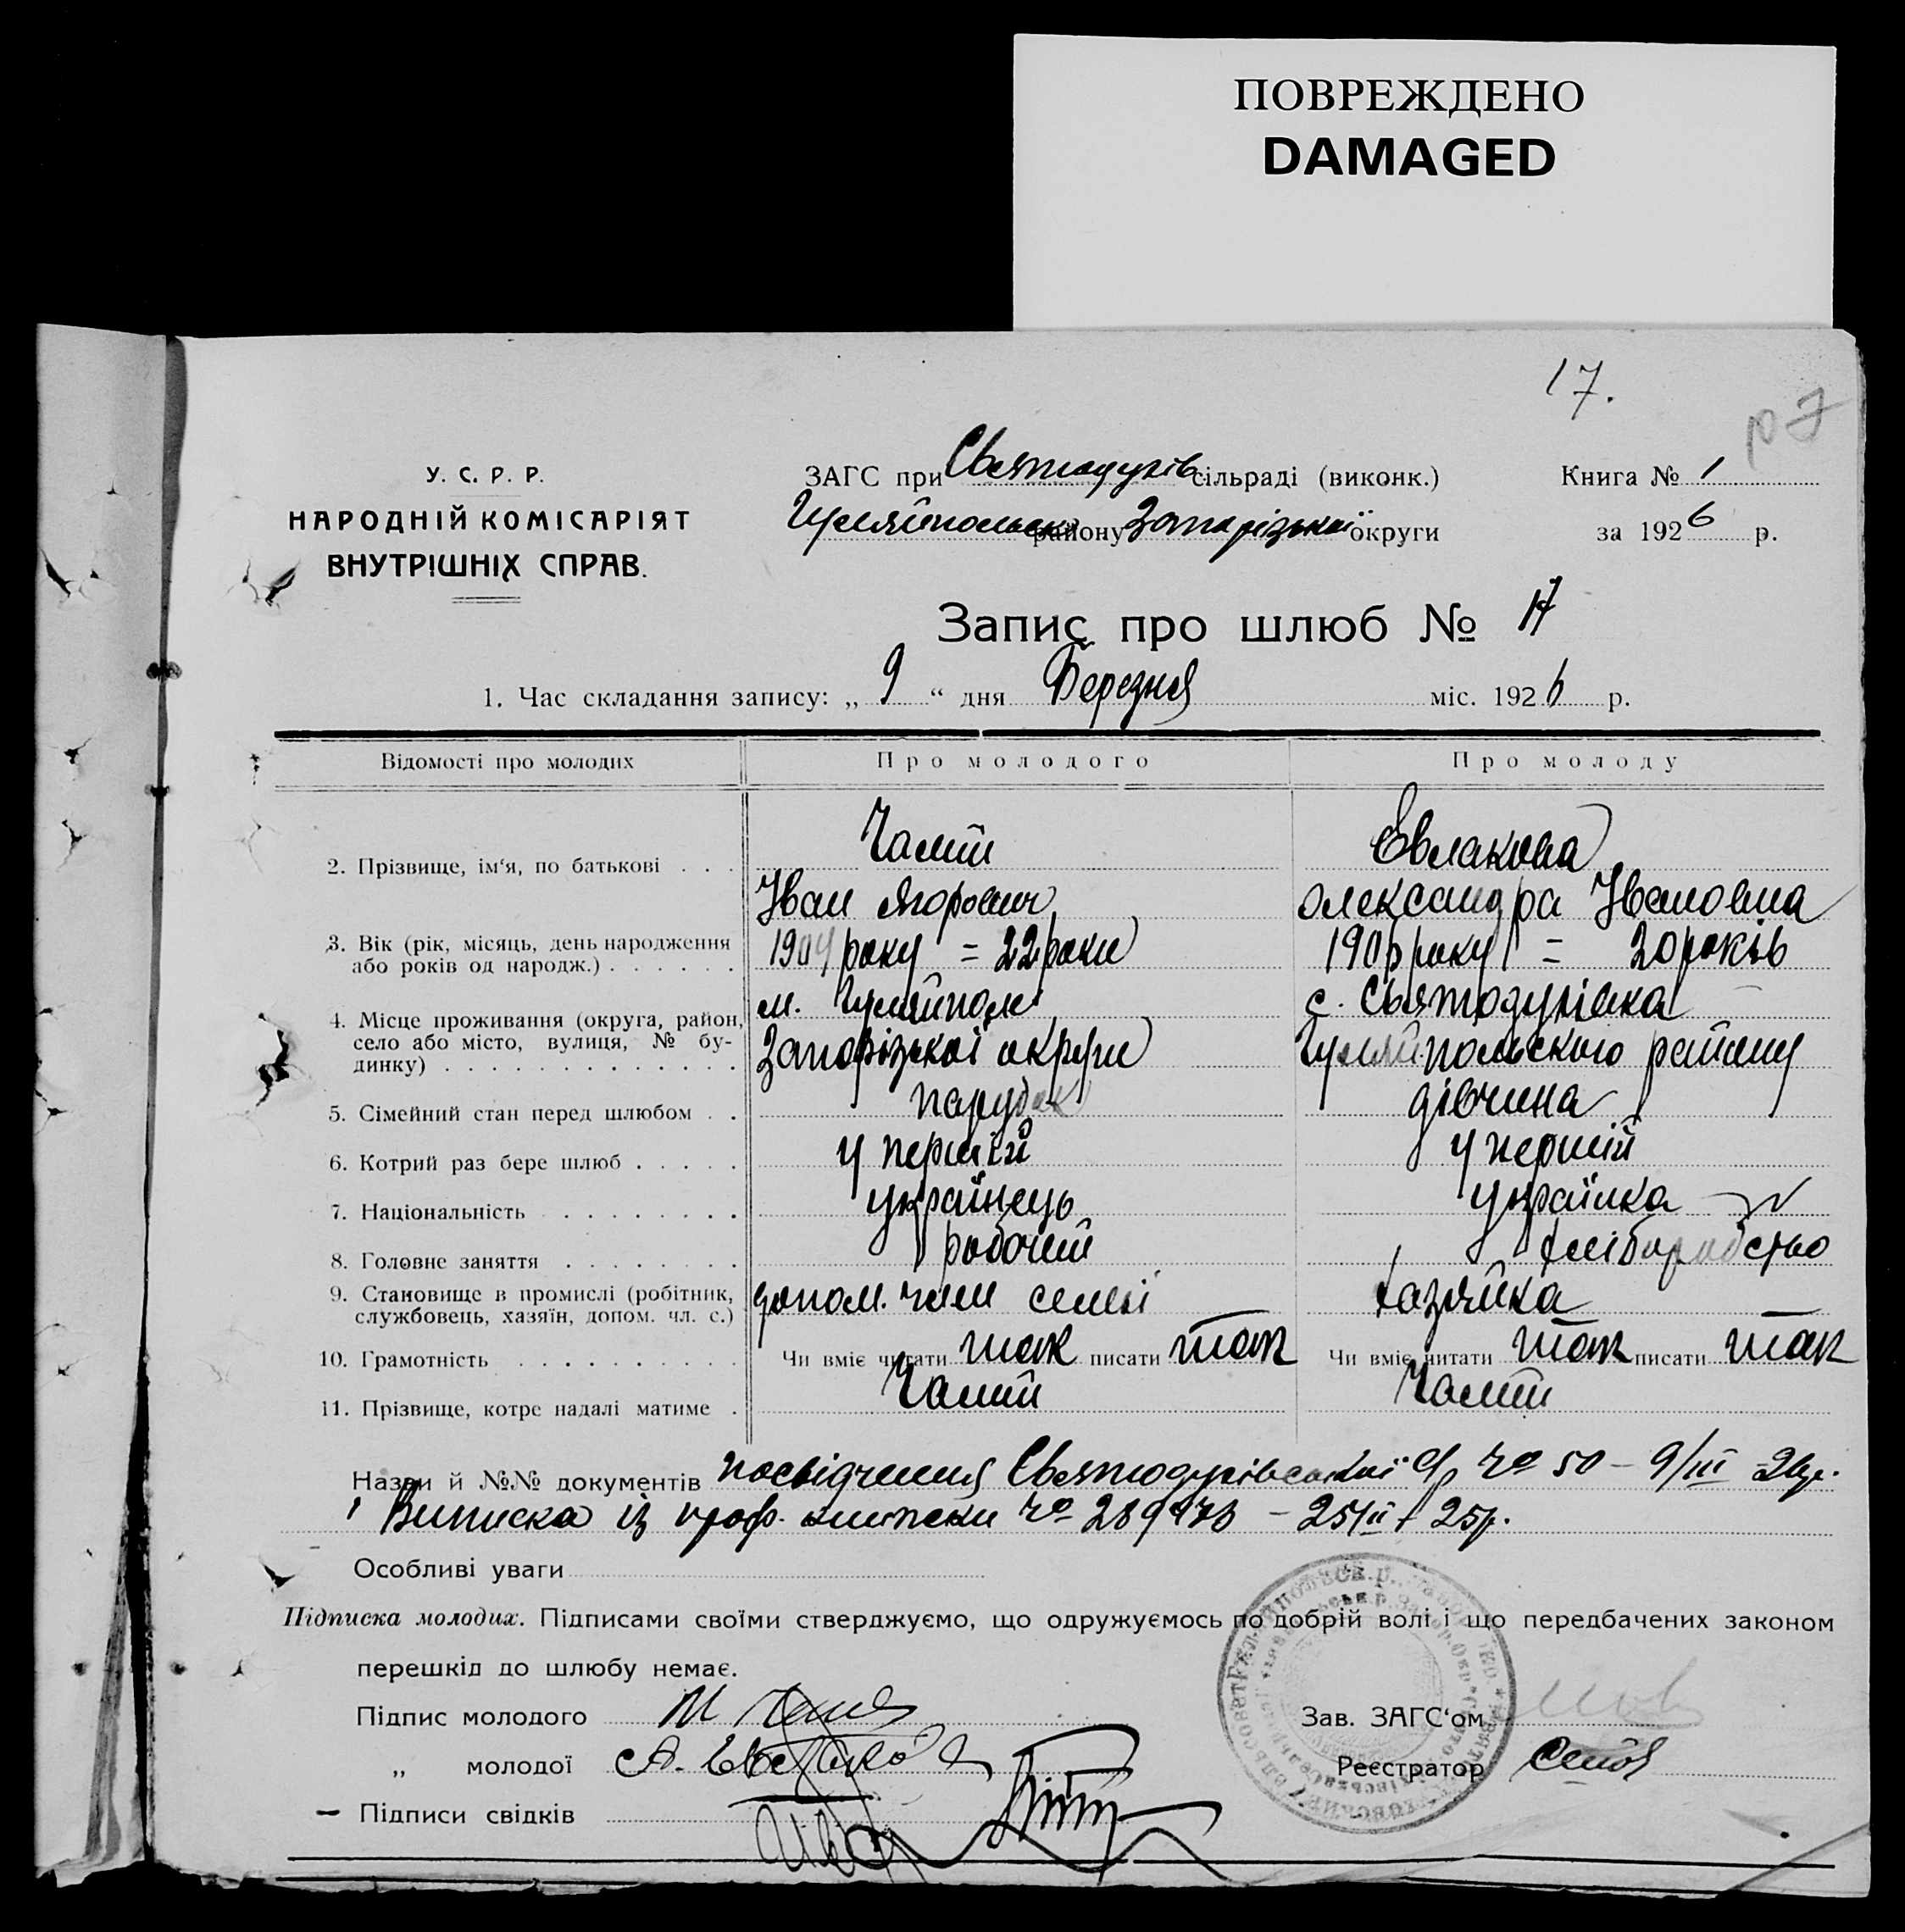 ПОВРЕЖДЕНО
DAMAGED
17.
р 7
У. С. Р. Р.
НАРОДНІЙ КОМІСАРІЯТ
ВНУТРІШНІХ СПРАВ.
ЗАГС при Святодухів сільраді (виконк.)
Гуляйпольськ району Запорізької округи
Книга № 1
за 1926 р.
Запис про шлюб № 17
1. Час складання запису: „ 9 “ дня Березня міс. 1926 р.
Відомості про молодих Про молодого Про молоду
2. Прізвище, ім‘я, по батькові . . . Евлакова
Іван Ягорович Олександра Івановна
3. Вік (рік, місяць, день народження
або років од народж.) . . . . . . 1904 року = 22 роки 1906 року = 20 років
4. Місце проживання (округа, район,
село або місто, вулиця, № бу-
динку) . . . . . . . . . . . . .
м. Гуляйполе с. Святодухівка
Запорізької округи Гуляйпольського району
5. Сімейний стан перед шлюбом . . парубок дівчина
6. Котрий раз бере шлюб . . . . . у перший у перший
7. Національність . . . . . . . . українець українка
8. Головне заняття . . . . . . . робочий хліборобство
9. Становище в промислі (робітник,
службовець, хазяїн, допом. чл. с.) допом. член семьї хазяйка
10. Грамотність . . . . . . . . . . Чи вміє читати так писати так Чи вміє читати так писати так
11. Прізвище, котре надалі матиме .
Назви й №№ документів посвідчення Святодухівської с/р № 50 – 9/III 26 р.
і Виписка із проф. книжки № – 25р.
Особливі уваги
Підписка молодих. Підписами своїми стверджуємо, що одружуємось по добрій волі і що передбачених законом
перешкід до шлюбу немає.
Підпис молодого
„ молодої А. Евлакова
Підписи свідків
Зав. ЗАГС‘ом
Реєстратор